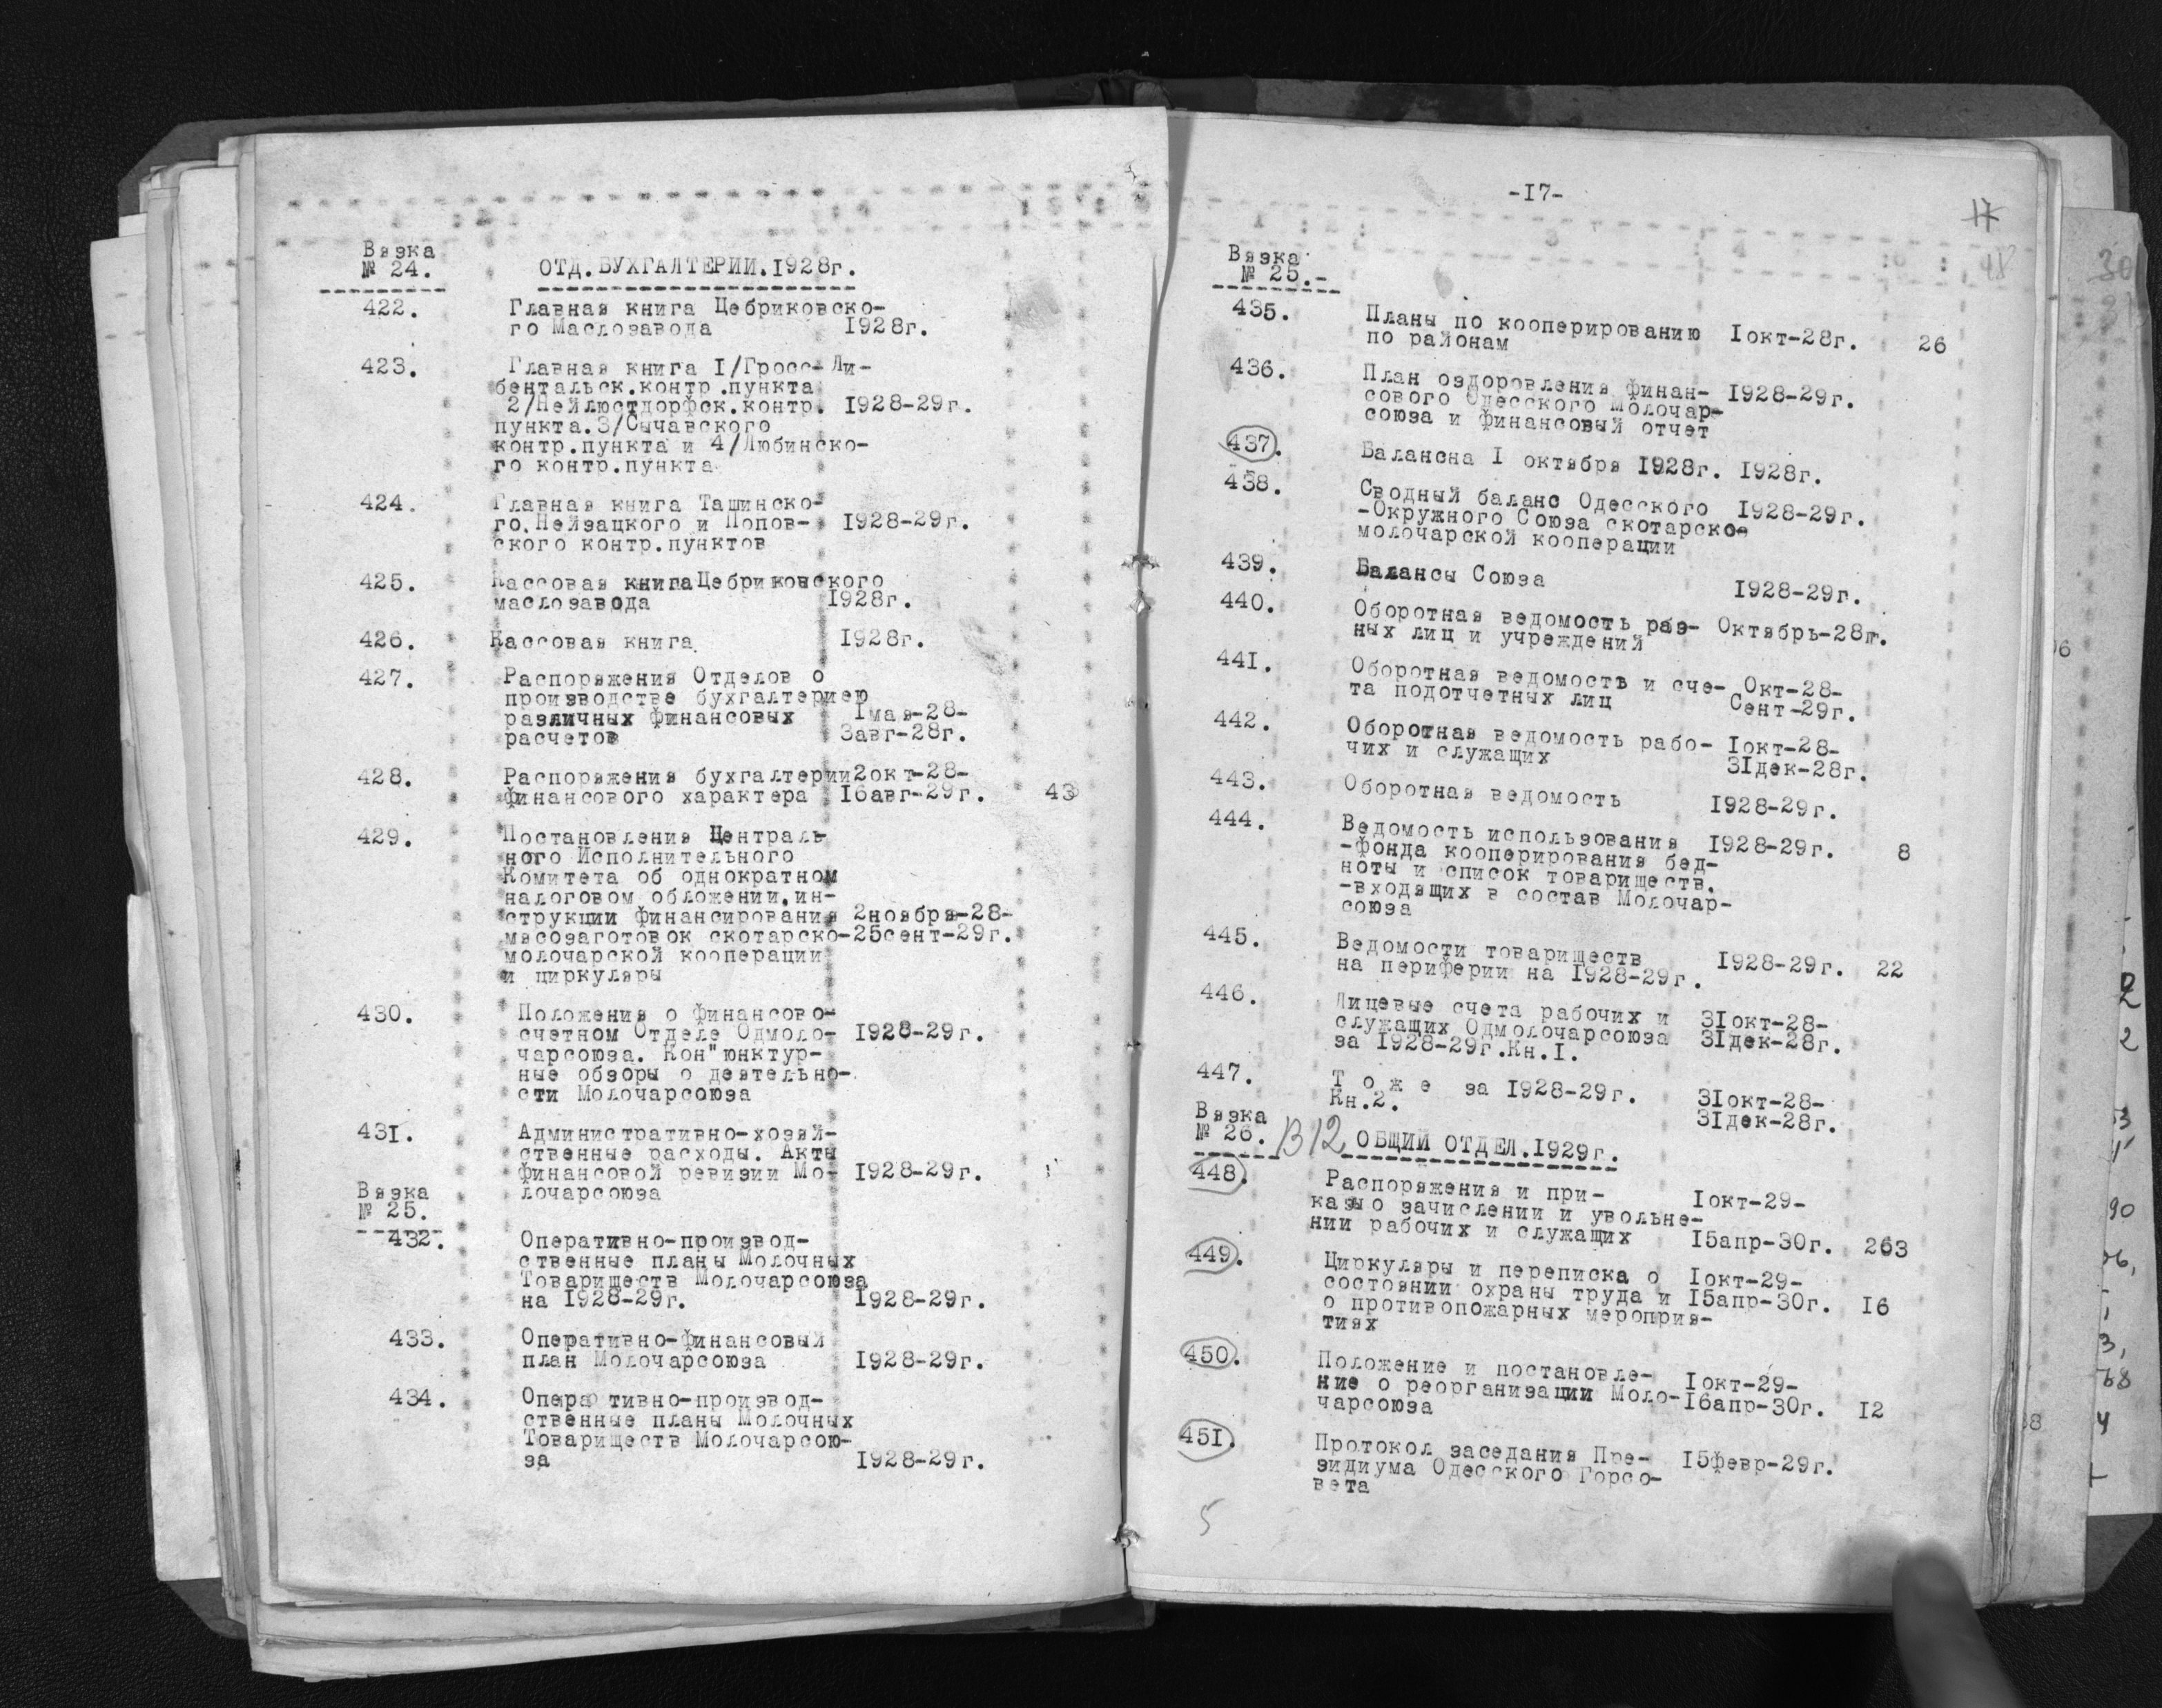 Вязка
№ 24.
ОТД.БУХГАЛТЕРИИ.1928г.
422. Главная книга Цебриковско-
го Маслозавода 1928г.
423. Главная книга I/Гросс-Ли-
бентальск.контр.пункта
2/Нейлюстдорфск.контр. 1928-29г.
пункта.3/Сычавского
контр.пункта и 4/Любинско-
го контр.пункта
424. Главная книга Ташинско-
го.Нейзацкого и Попов- 1928-29г.
ского контр.пунктов
425. Кассовая книга Цебриковского
маслозавода 1928г.
426. Кассовая книга 1928г.
427. Распоряжения Отделов о
производстве бухгалтериею
различных финансовых 1мая-28-
расчетов 3авг-28г.
428. Распоряжения бухгалтерии 2окт-28-
финансового характера 16авг-29г. 43
429. Постановления Централь-
ного Исполнительного
Комитета об однократном
налоговом обложении.ин-
струкции финансирования 2ноября-28-
мясозаготовок скотарско-25сент-29г.
молочарской кооперации
и циркуляры
430. Положения о финансово-
счетном Отделе Одмоло- 1928-29г.
чарсоюза. Кон"юнктур-
ные обзоры о деятельно-
сти Молочарсоюза
431. Административно-хозяй-
ственные расходы. Акты
финансовой ревизии Мо- 1928-29г.
лочарсоюза
Вязка
№ 25.
432. Оперативно-производ-
ственные планы Молочных
Товариществ Молочарсоюза
на 1928-29г. 1928-29г.
433. Оперативно-финансовый
план Молочарсоюза 1928-29г.
434. Оперативно-производ-
ственные планы Молочных
Товариществ Молочарсою-
за 1928-29г.
-17-
17
48
Вязка
№ 25.-
435. Планы по кооперированию 1окт-28г. 26
по районам
436. План оздоровления финан- 1928-29г.
сового Одесского Молочар-
союза и финансовый отчет
437. Балансна 1 октября 1928г. 1928г.
438. Сводный баланс Одесского 1928-29г.
-Окружного Союза скотарско-
молочарской кооперации
439. Балансы Союза 1928-29г.
440. Оборотная ведомость раз- Октябрь-28г.
ных лиц и учреждений
441. Оборотная ведомость и сче- Окт-28-
та подотчетных лиц Сент-29г.
442. Оборотная ведомость рабо- 1окт-28-
чих и служащих 31дек-28г.
443. Оборотная ведомость 1928-29г.
444. Ведомость использования 1928-29г. 8
-фонда кооперирования бед-
ноты и список товариществ.
-входящих в состав Молочар-
союза
445. Ведомости товариществ 1928-29г. 22
на периферии на 1928-29г.
446. Лицевые счета рабочих и 31окт-28-
служащих Одмолочарсоюза 31дек-28г.
за 1928-29г.Кн.I.
447. Т о ж е за 1928-29г. 31окт-28-
Кн.2. 31дек-28г.
Вязка
№ 26. В12 ОБЩИЙ ОТДЕЛ.1929г.
448. Распоряжения и при- 1окт-29-
казы о зачислении и увольне-
нии рабочих и служащих 15апр-30г. 263
449. Циркуляры и переписка о 1окт-29-
состоянии охраны труда и 15апр-30г. 16
о противопожарных мероприя-
тиях
450. Положение и постановле- 1окт-29-
ние о реорганизации Моло-16апр-30г. 12
чарсоюза
451. Протокол заседания Пре- 15февр-29г.
зидиума Одесского Горсо-
вета
5